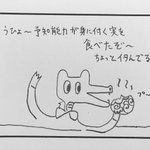 うひょ〜予知能力が身に付く実を
食べたぞ〜
ちょっとイタんでる
プ〜